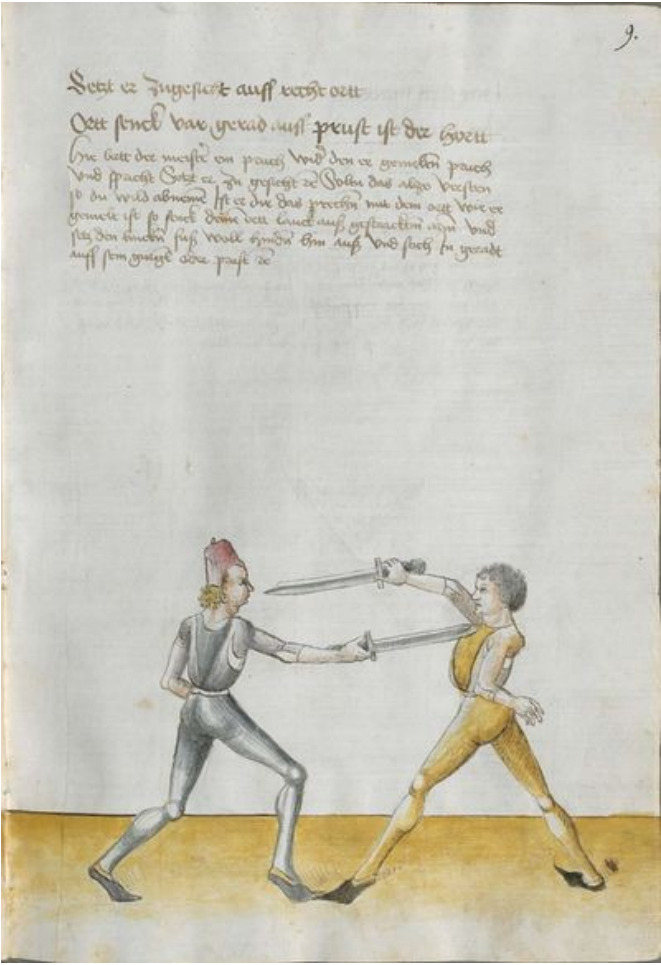 9.
Setzt er zugesicht auff recht ortt
Ortt senck var gerad auff prust ist der hortt
hie hatt der meister ein pruch wider den er gemelten pruch
Vnd spricht Setzt er zu gesicht Soltu das also versten
so du wild abnemen Ist er dir das prechen mit dem ortt wie er
gemelt ist so senck dein ortt lanck auß gestracktem arm vnd
setz den lincken fuß woll hinden hin auß Vnd stich In geradt
auff sein gurgel oder prust